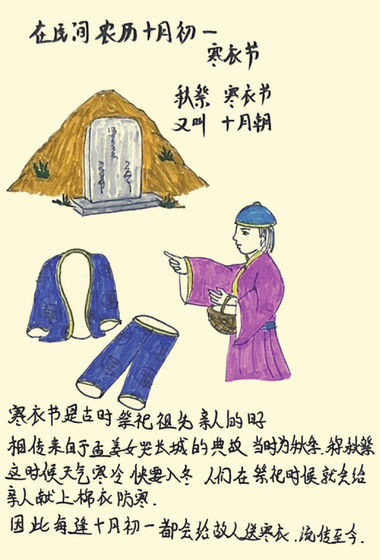 在民间农历十月初一
寒衣节
秋祭 寒衣节
又叫 十月朝
寒衣节是古时祭祀祖先亲人的日
相传来自于孟姜女哭长城的典故 当时为秋季.称秋祭
这时候天气寒冷 快要入冬 人们在祭祀时候就会给
亲人献上棉衣防寒.
因此每逢十月初一都会给故人送寒衣.流传至今.